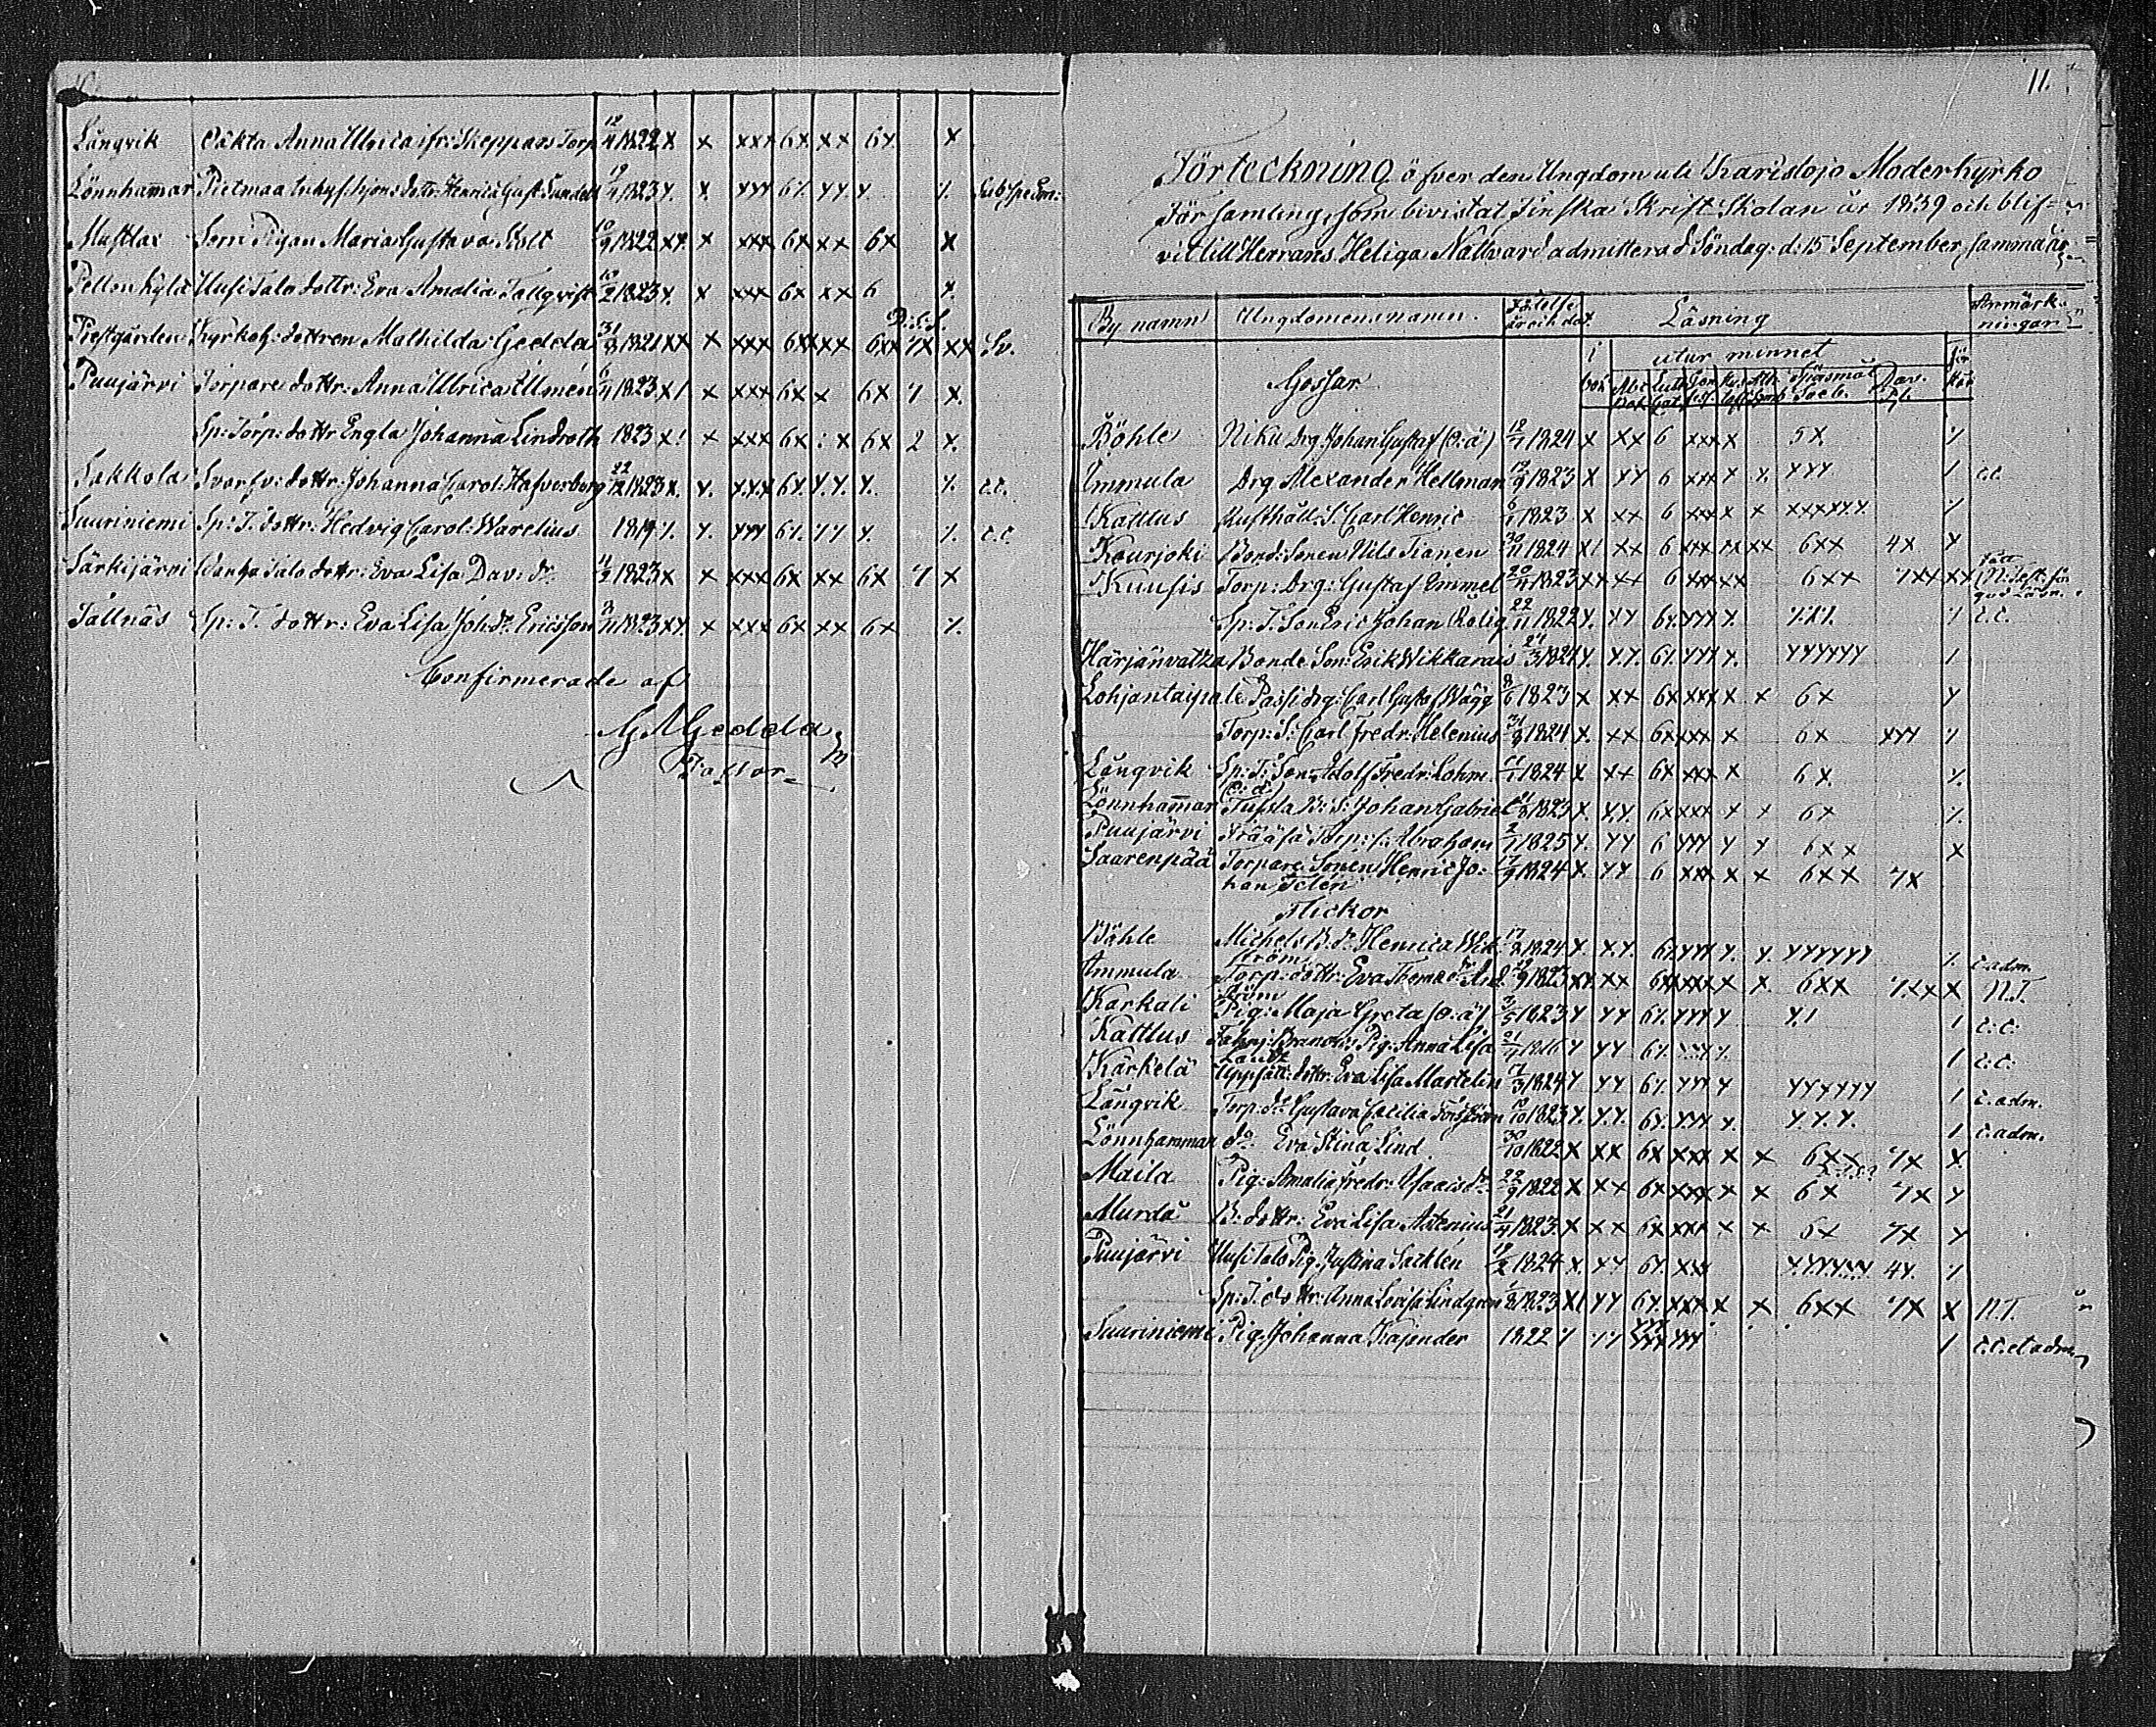 Långvik Oäkta Anna Ulrica ifr: Skeppars Torp 12/4 1822 x x xxx 6x xx 6x x
Lönnhamar Pietmaa inhys hjons dottr. Henrica Gust. Sundell 19/4 1823 x. x. xxx 6x xx x. x. Sub spe Em:
Mustlax Sorn Pigan Maria Gustava Stolt 10/9 1822 xx. x xxx 6x xx 6x x
Pellonkylä Uusi Talo dottr: Eva Amalia Tallqvist 10/2 1823 x. x xxx 6x xx 6 x.
D: s: s.
Prestgården Kyrkoh: dottren Mathilda Gedda 31/8 1821 xx x xxx 6xx xx 6xx 7x xx Sv.
Puujärvi Torpare dottr: Anna Ulrica Ulmén 6/4 1823 x/ x xxx 6x x 6x 7 x.
Sp: Torp: dottr Engla Johanna Lindroth 1823 x! x xxx 6x : x 6x 2 x.
Sakkola Svarfv: dottr: Johanna Carol: Hafverberg 22/12 1823 x. x. xxx 6x. x. x. x. x. c.c.
Suuriniemi Sp: T. dottr: Hedvig Carol: Warelius 1819 x. x. xxx 6x. xx x. x. c.c
Särkijärvi Wanha Talo dottr: Eva Lisa Dav: dr. 11/2 1823 x x xxx 6x xx 6x 7 x
Tallnäs Sp: T. dottr: Eva Lisa Joh: dr. Ericsson 3/11 1823 xx. x xxx 6x xx 6x x.
Confirmerade af
G M Gedda
Pastor
11.
Förteckning öfver den Ungdom uti Karislojo Moderkyrko
Församling, som bivistat Finska Skrift Skolan år 1839 och blif-
vit till Herrans Heliga Nattvard admitterad Söndag: d: 15 September samma år
By namn Ungdomens namn. Födelse år och dat. Läsning Anmärkningar
i bok utur minnet
Gossar
Böhle Niku Drg. Johan Gustaf (o: ä) 12/7 1824 x xx 6 xxx x 5x x
Immula Drg Alexander Hellman 12/9 1823 x xx 6 xxx x x. xxx / c.c.
Kattlus Rusthåll: S. Carl Henric 6/1 1823 x xx 6 xxx x x xxxxxx x
Kourjoki Bond: Sonen Nils Tianen 30/11 1824 x/ xx 6 xxx xx xx 6xx 4x x
Kuusis Torp: Drg: Gustaf Emmel 20/11 1823 xx xx 6 xxx xx 6xx 7xx xx fått N. Test. för god Läsn.
Sp: T. Son Eric Johan Rolig 22/11 1822 x. xx 6x. xxx x. xxx. / c.c.
Härjänvatza Bonde Son: Erik Wikkarais 24/3 1824 x. x.x. 6x. xxx x. xxxxxx /
Lohjantaipale Passi drg: Carl Gustaf Wägg 8/6 1823 x xx 6x xxx x x 6x x
Torp: S: Carl Fredr: Helenius 31/8 1824 x. xx 6x xxx x 6x xxx x
Långvik Sp: T: Son: Adolf Fredr: Lohm 11/1 1824 x xx 6x xxx x 6x. x.
Lönnhammar (o: ä) Tupsla B: S: Johan Gabriel 21/8 1823 x. xx. 6x xxx x x 6x x.
Puujärvi Torp: s: Abraham 2/7 1825 x. xx 6 xxx x x 6xx x
Saarenpää Torpare Sonen Henric Jo- 17/9 1824 x. xx 6 xxx x x 6xx 7x
han Telén
Flickor
Böhle Michels B. dr Henrica Wik- 17/8 1824 x. x.x. 6x. xxx x. x. xxxxxx x. c. adm.
ström
Immula Torp: dottr: Eva Thomæ dr. 1823 xx xx 6xx xxx x x 6xx 7xx x N.T.
Karkali Pig: Maja Greta (o: ä) 3/5 1823 x xx 6x. xxx x x./ / c.c.
Kattlus Pig: Anna Lisa 21/7 1816 x xx 6x. xxx x. / c.c.
Kärkelä Uppsått: dottr: Eva Lisa Martelin 17/3 1824 x xx 6x. xxx x xxxxxx / c. adm.
Långvik Torp: dr. Gustava Cæcilia Forsström 10/10 1823 x. x.x. 6x. xxx x. x.x.x. / c. adm.
Lönnhammar do. Eva Stina Lind 30/10 1822 x xx 6x xxx x x 6xx 7x x
Maila Pig: Amalia Fredr: Isaacs dr. 22/9 1822 x xx 6x xxx x x 6x 7x x
Murdå B: dottr: Eva Lisa Astenius 21/4 1823 x xx 6x xxx x x 6x 7x x
Puujärvi Uusi Talo Pig. Justina Sacklén 19/2 1824 x. xx 6x. xxx xxxxxx 4x. x
Sp: T. dottr: Anna Lovisa Lindgren 1/8 1823 x/ xx 6x. xxx x x 6xx 7x x N.T.
Suuriniemi Pig. Johanna Kajender 1822 x xx xxx xxx / c.c. et adm.